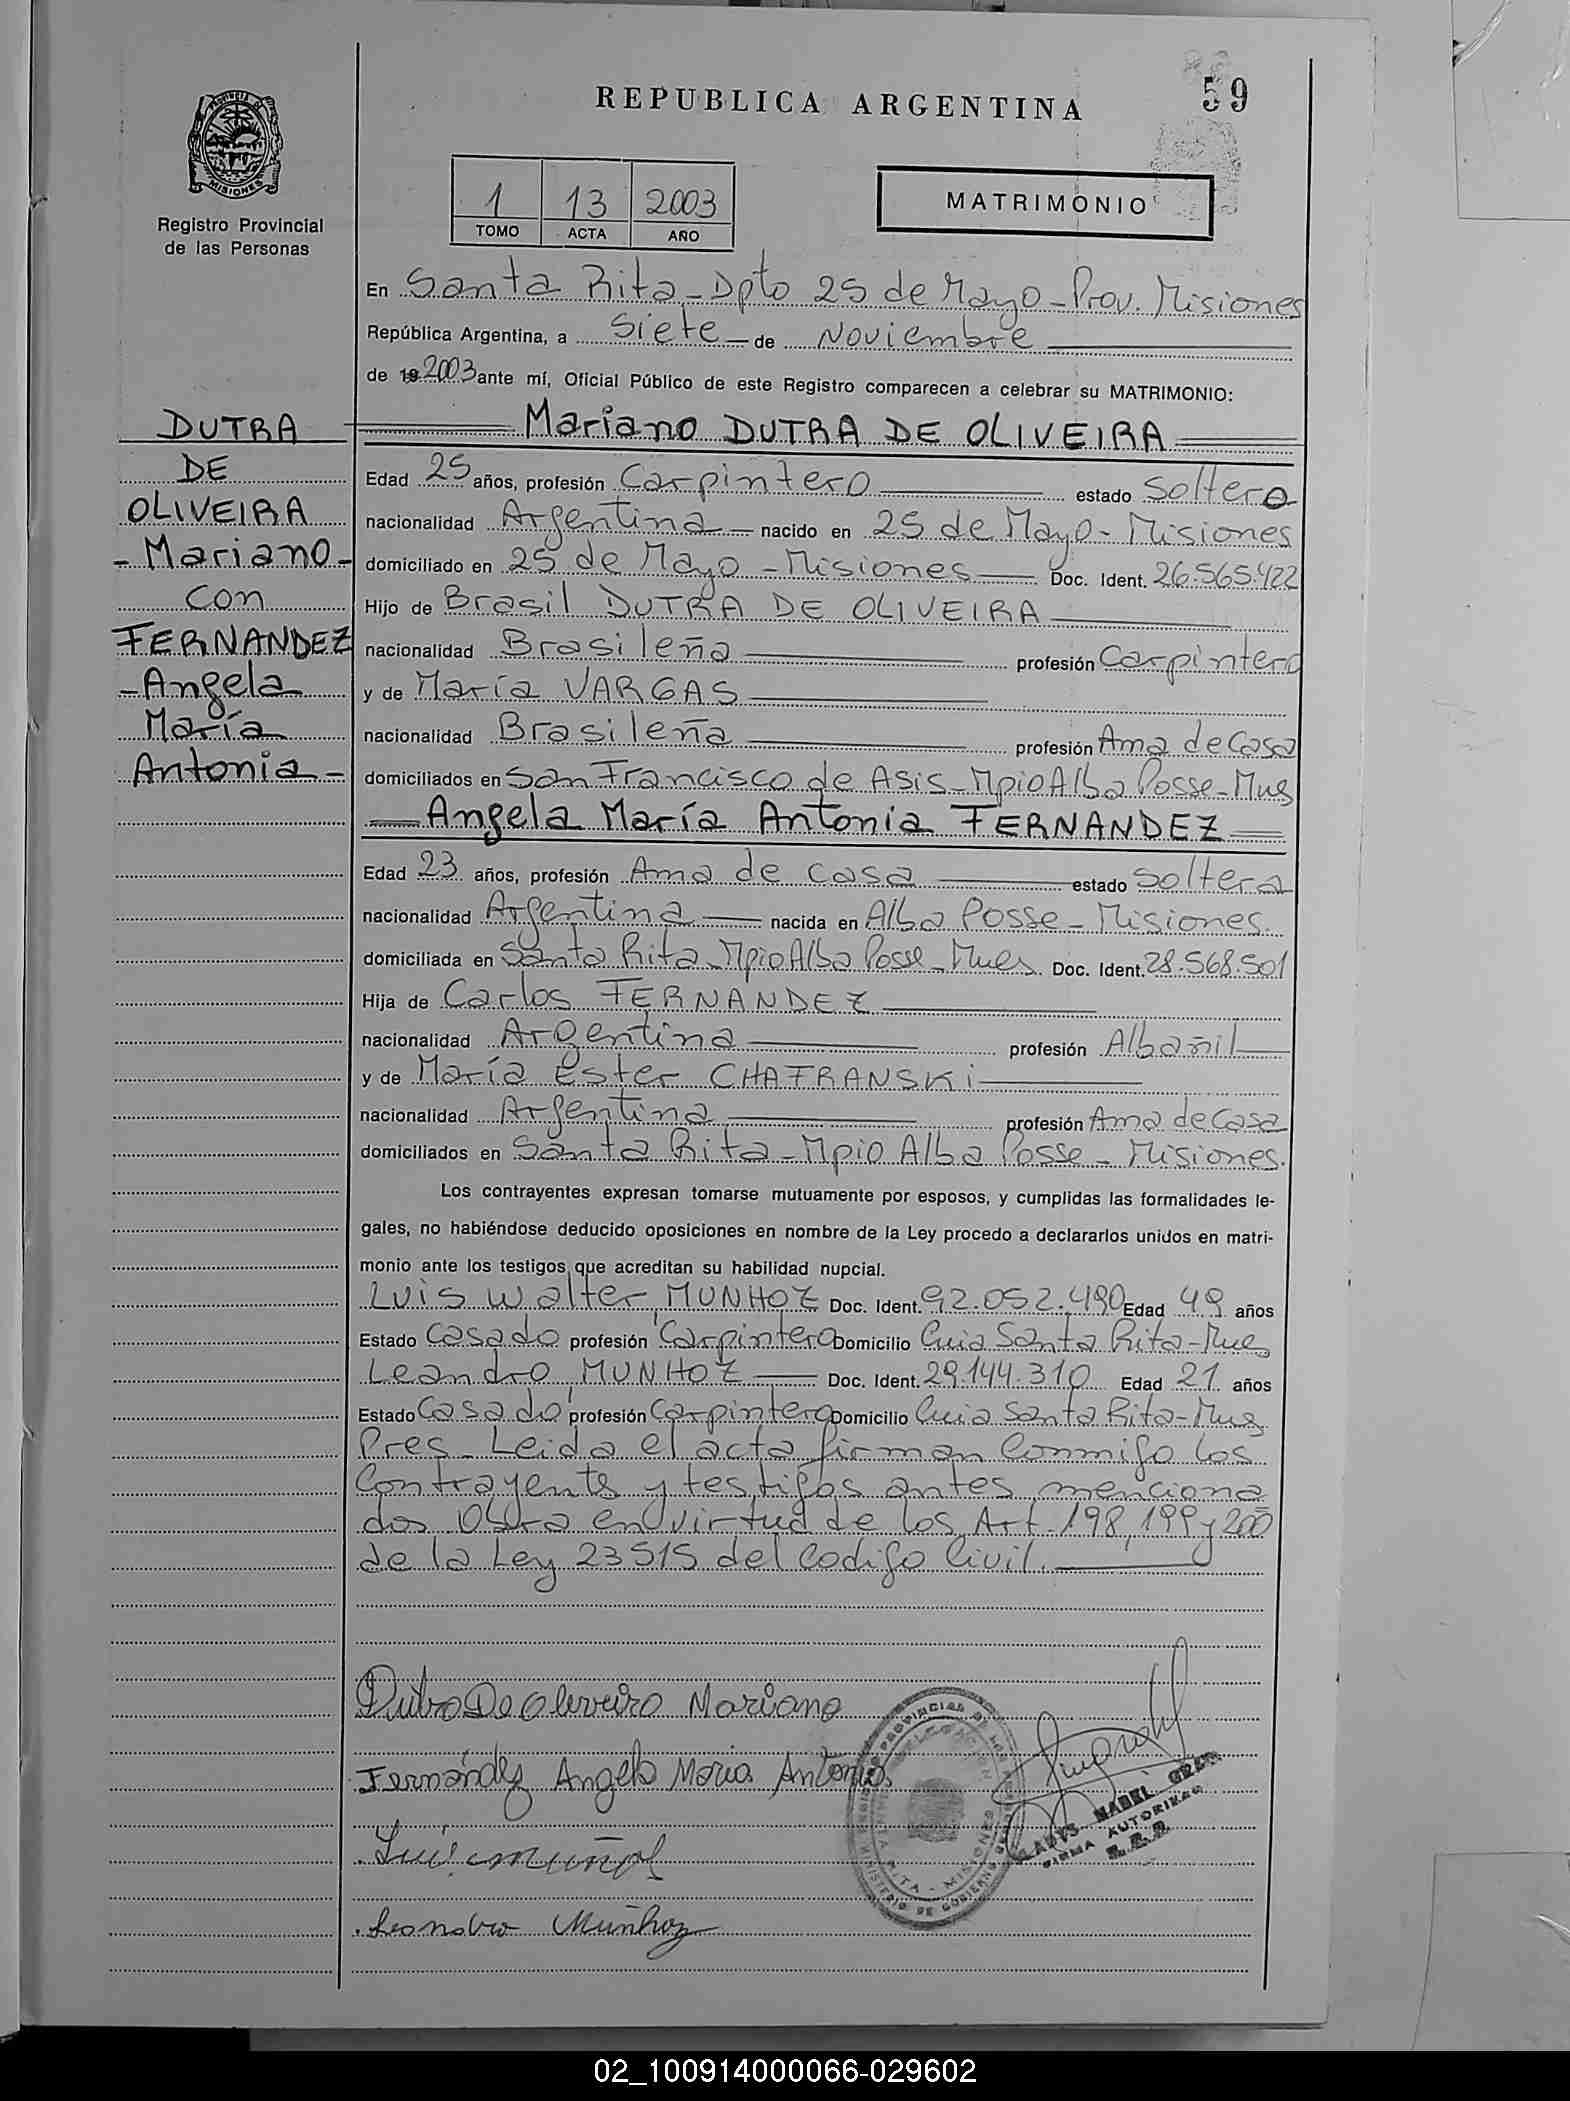 59
REPUBLICA ARGENTINA
PROVINCIA DE
MISIONES
Registro Provincial
de las Personas
1 13 2003
TOMO ACTA AÑO
MATRIMONIO
En Santa Rita - Dpto 25 de Mayo - Prov. Misiones
República Argentina, a Siete de Noviembre
de 19 2003 ante mí, Oficial Público de este Registro comparecen a celebrar su MATRIMONIO:
DUTRA
DE
OLIVEIRA
- Mariano -
con
FERNANDEZ
- Angela
María
Antonia -
Mariano DUTRA DE OLIVEIRA
Edad 25 años, profesión Carpintero estado Soltero
nacionalidad Argentina nacido en 25 de Mayo - Misiones
domiciliado en 25 de Mayo - Misiones Doc. Ident. 26.565.422
Hijo de Brasil DUTRA DE OLIVEIRA
nacionalidad Brasileña profesión Carpintero
y de María VARGAS
nacionalidad Brasileña profesión Ama de Casa
domiciliados en San Francisco de Asis - Mpio Alba Posse - Mnes
Angela María Antonia FERNANDEZ
Edad 23 años, profesión Ama de casa estado Soltera
nacionalidad Argentina nacida en Alba Posse - Misiones.
domiciliada en Santa Rita - Mpio Alba Posse - Mnes Doc. Ident. 28.568.501
Hija de Carlos FERNANDEZ
nacionalidad Argentina profesión Albañil
y de María Ester CHAFRANSKi
nacionalidad Argentina profesión Ama de Casa
domiciliados en Santa Rita - Mpio Alba Posse - Misiones.
Los contrayentes expresan tomarse mutuamente por esposos, y cumplidas las formalidades le-
gales, no habiéndose deducido oposiciones en nombre de la Ley procedo a declararlos unidos en matri-
monio ante los testigos que acreditan su habilidad nupcial.
Luis Walter MUNHOZ Doc. Ident. 92.052.490 Edad 49 años
Estado Casado profesión Carpintero Domicilio Cnia Santa Rita - Mnes
Leandro MUNHOZ Doc. Ident. 29.144.310 Edad 21 años
Estado Casado profesión Carpintero Domicilio Cnia Santa Rita - Mnes
Pres. Leida el acta firman Conmigo los
Contrayents y testigos antes menciona
dos, Obra en virtud de los Art. 198, 199 y 200
de la Ley 23515 del Codigo Civil.
Dutra De Oliveira Mariano
Fernández Angela Maria Antonia
Luis Muñoz
Leandro Muñhoz
GLADYS MABEL
FIRMA AUTORIZAD
02_100914000066-029602